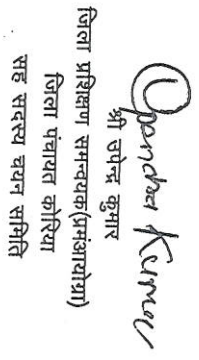 Upendra Kumar
श्री उपेन्द्र कुमार
जिला प्रशिक्षण समन्वयक(प्रमंआयोग्रा)
जिला पंचायत कोरिया
सह सदस्य चयन समिति